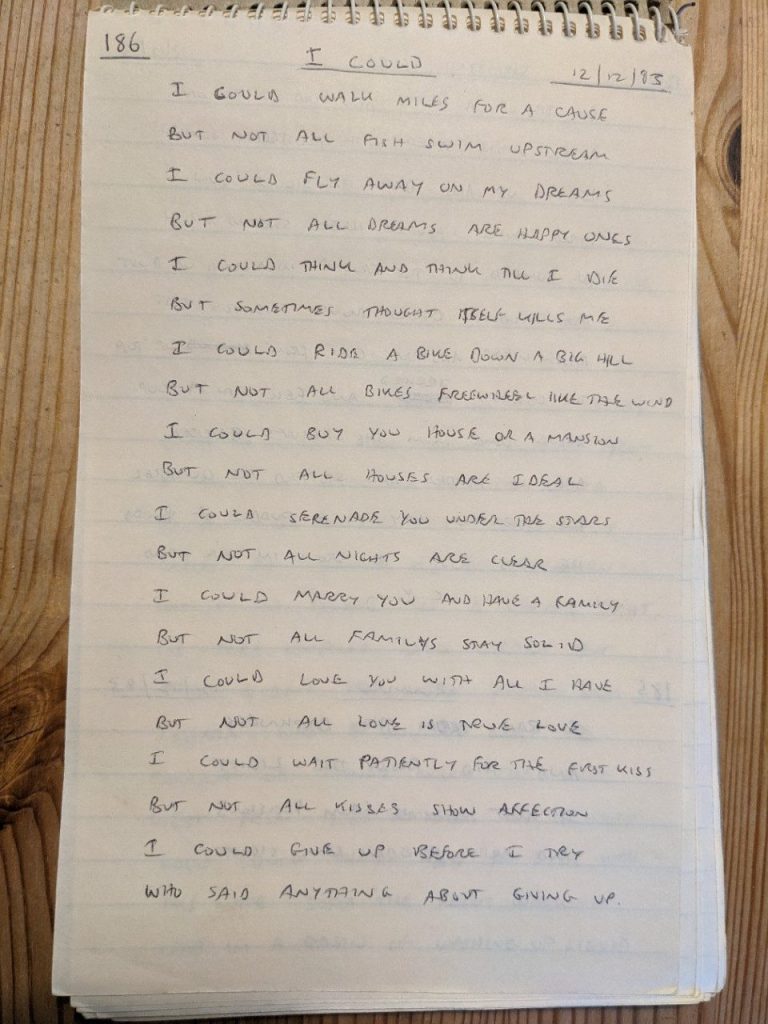 186
I COULD
12/12/83
I COULD WALK MILES FOR A CAUSE
BUT NOT ALL FISH SWIM UPSTREAM
I COULD FLY AWAY ON MY DREAMS
BUT NOT ALL DREAMS ARE HAPPY ONES
I COULD THINK AND THINK TILL I DIE
BUT SOMETIMES THOUGHT ITSELF KILLS ME
I COULD RIDE A BIKE DOWN A BIG HILL
BUT NOT ALL BIKES FREEWHEEL LIKE THE WIND
I COULD BUY YOU HOUSE OR A MANSION
BUT NOT ALL HOUSES ARE IDEAL
I COULD SERENADE YOU UNDER THE STARS
BUT NOT ALL NIGHTS ARE CLEAR
I COULD MARRY YOU AND HAVE A FAMILY
BUT NOT ALL FAMILYS STAY SOLID
I COULD LOVE YOU WITH ALL I HAVE
BUT NOT ALL LOVE IS TRUE LOVE
I COULD WAIT PATIENTLY FOR THE FIRST KISS
BUT NOT ALL KISSES SHOW AFFECTION
I COULD GIVE UP BEFORE I TRY
WHO SAID ANYTHING ABOUT GIVING UP.